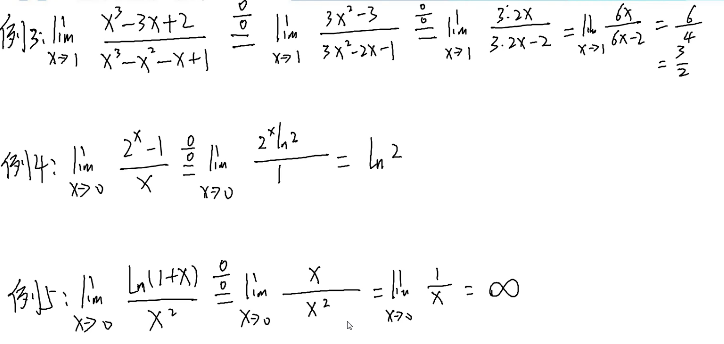 例3: lim x→1 (x³-3x+2)/(x³-x²-x+1) =(0/0) lim x→1 (3x²-3)/(3x²-2x-1) =(0/0) lim x→1 (3·2x)/(3·2x-2) = lim x→1 6x/(6x-2) = 6/4
= 3/2
例4: lim x→0 (2ˣ-1)/x =(0/0) lim x→0 (2ˣln2)/1 = ln2
例5: lim x→0 ln(1+x)/x² =(0/0) lim x→0 x/x² = lim x→0 1/x = ∞